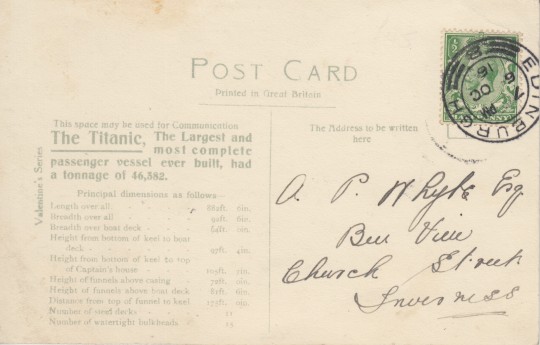 POST CARD
Printed in Great Britain
This space may be used for Communication
The Titanic, The Largest and
most complete
passenger vessel ever built, had
a tonnage of 46,382.
Principal dimensions as follows—
Length over all 882ft. 6in.
Breadth over all 92ft. 6in.
Breadth over boat deck 94ft. 0in.
Height from bottom of keel to boat
deck 97ft. 4in.
Height from bottom of keel to top
of Captain's house 105ft. 7in.
Height of funnels above casing 72ft. 0in.
Height of funnels above boat deck 81ft. 6in.
Distance from top of funnel to keel 175ft. 0in.
Number of steel decks 11
Number of watertight bulkheads 15
Valentine's Series
The Address to be written
here
EDINBURGH
OC
16
A. P. Whyte Esq
View
Church Street
Inverness